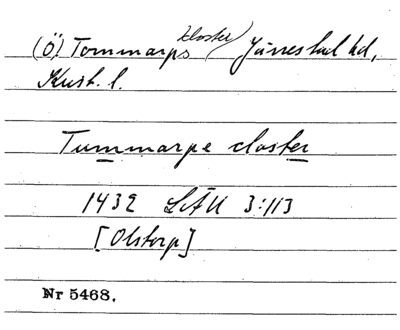 (Ö) Tommarps kloster / Järrestad hd,
Krist. l.
Tummarpe closter
1432 LÄU 3:113
[Olstorp]
Nr 5468.